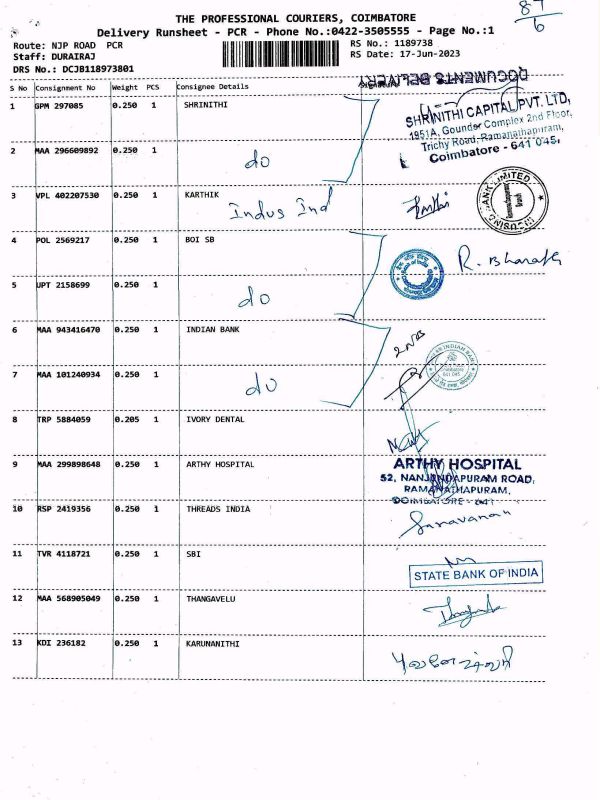 87
6
THE PROFESSIONAL COURIERS, COIMBATORE
Delivery Runsheet - PCR - Phone No.:0422-3505555 - Page No.:1
Route: NJP ROAD PCR RS No.: 1189738
Staff: DURAIRAJ RS Date: 17-Jun-2023
DRS No.: DCJB118973801
DOCUMENTS DELIVERY
S No Consignment No Weight PCS Consignee Details
1 GPM 297085 0.250 1 SHRINITHI
SHRINITHI CAPITAL PVT. LTD,
1951A, Gounder Complex 2nd Floor,
Trichy Road, Ramanathapuram,
Coimbatore - 641 045.
2 MAA 296609892 0.250 1 do
3 VPL 402207530 0.250 1 KARTHIK
Indus Ind
4 POL 2569217 0.250 1 BOI SB
R. Bharath
5 UPT 2158699 0.250 1 do
6 MAA 943416470 0.250 1 INDIAN BANK
7 MAA 101240934 0.250 1 do
8 TRP 5884059 0.205 1 IVORY DENTAL
9 MAA 299898648 0.250 1 ARTHY HOSPITAL
ARTHY HOSPITAL
52, NANJUNDAPURAM ROAD,
RAMANATHAPURAM,
COIMBATORE - 641
10 RSP 2419356 0.250 1 THREADS INDIA
Saravanan
11 TVR 4118721 0.250 1 SBI
STATE BANK OF INDIA
12 MAA 568905049 0.250 1 THANGAVELU
13 KDI 236182 0.250 1 KARUNANITHI